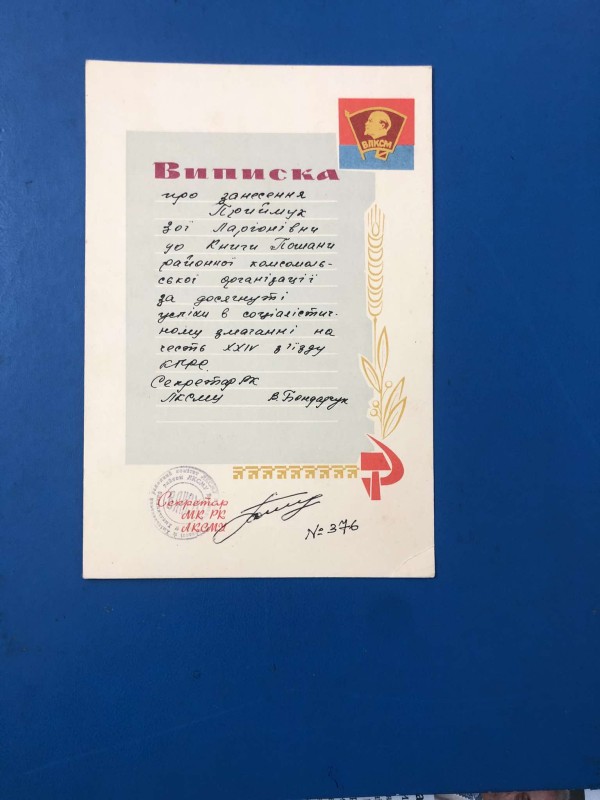 ВЛКСМ
Виписка
про занесення
Приймук
Зої Ларіонівни
до Книги Пошани
районної комсомоль-
ської організації
за досягнуті
успіхи в соціалістич-
ному змаганні на
честь XXIV з'їзду
КПРС.
Секретар РК
ЛКСМУ В. Бондарчук
Секретар
МК РК
ЛКСМУ
№ 376